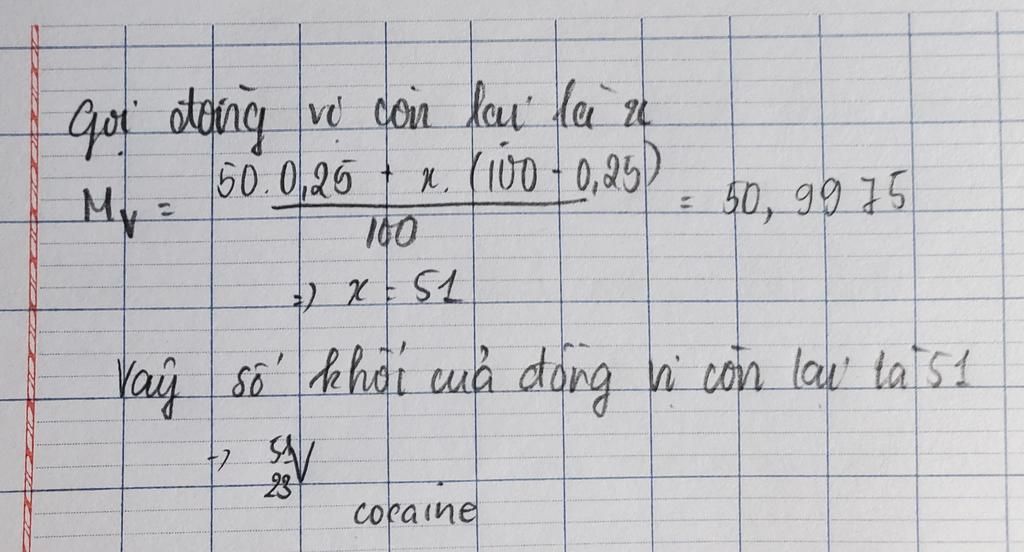 Gọi đồng vị còn lại là x
M_V = (50.0,25 + x.(100 - 0,25))/100 = 50,9975
=) x = 51
Vậy số khối của đồng vị còn lại là 51
→ ⁵¹₂₃V
cocaine